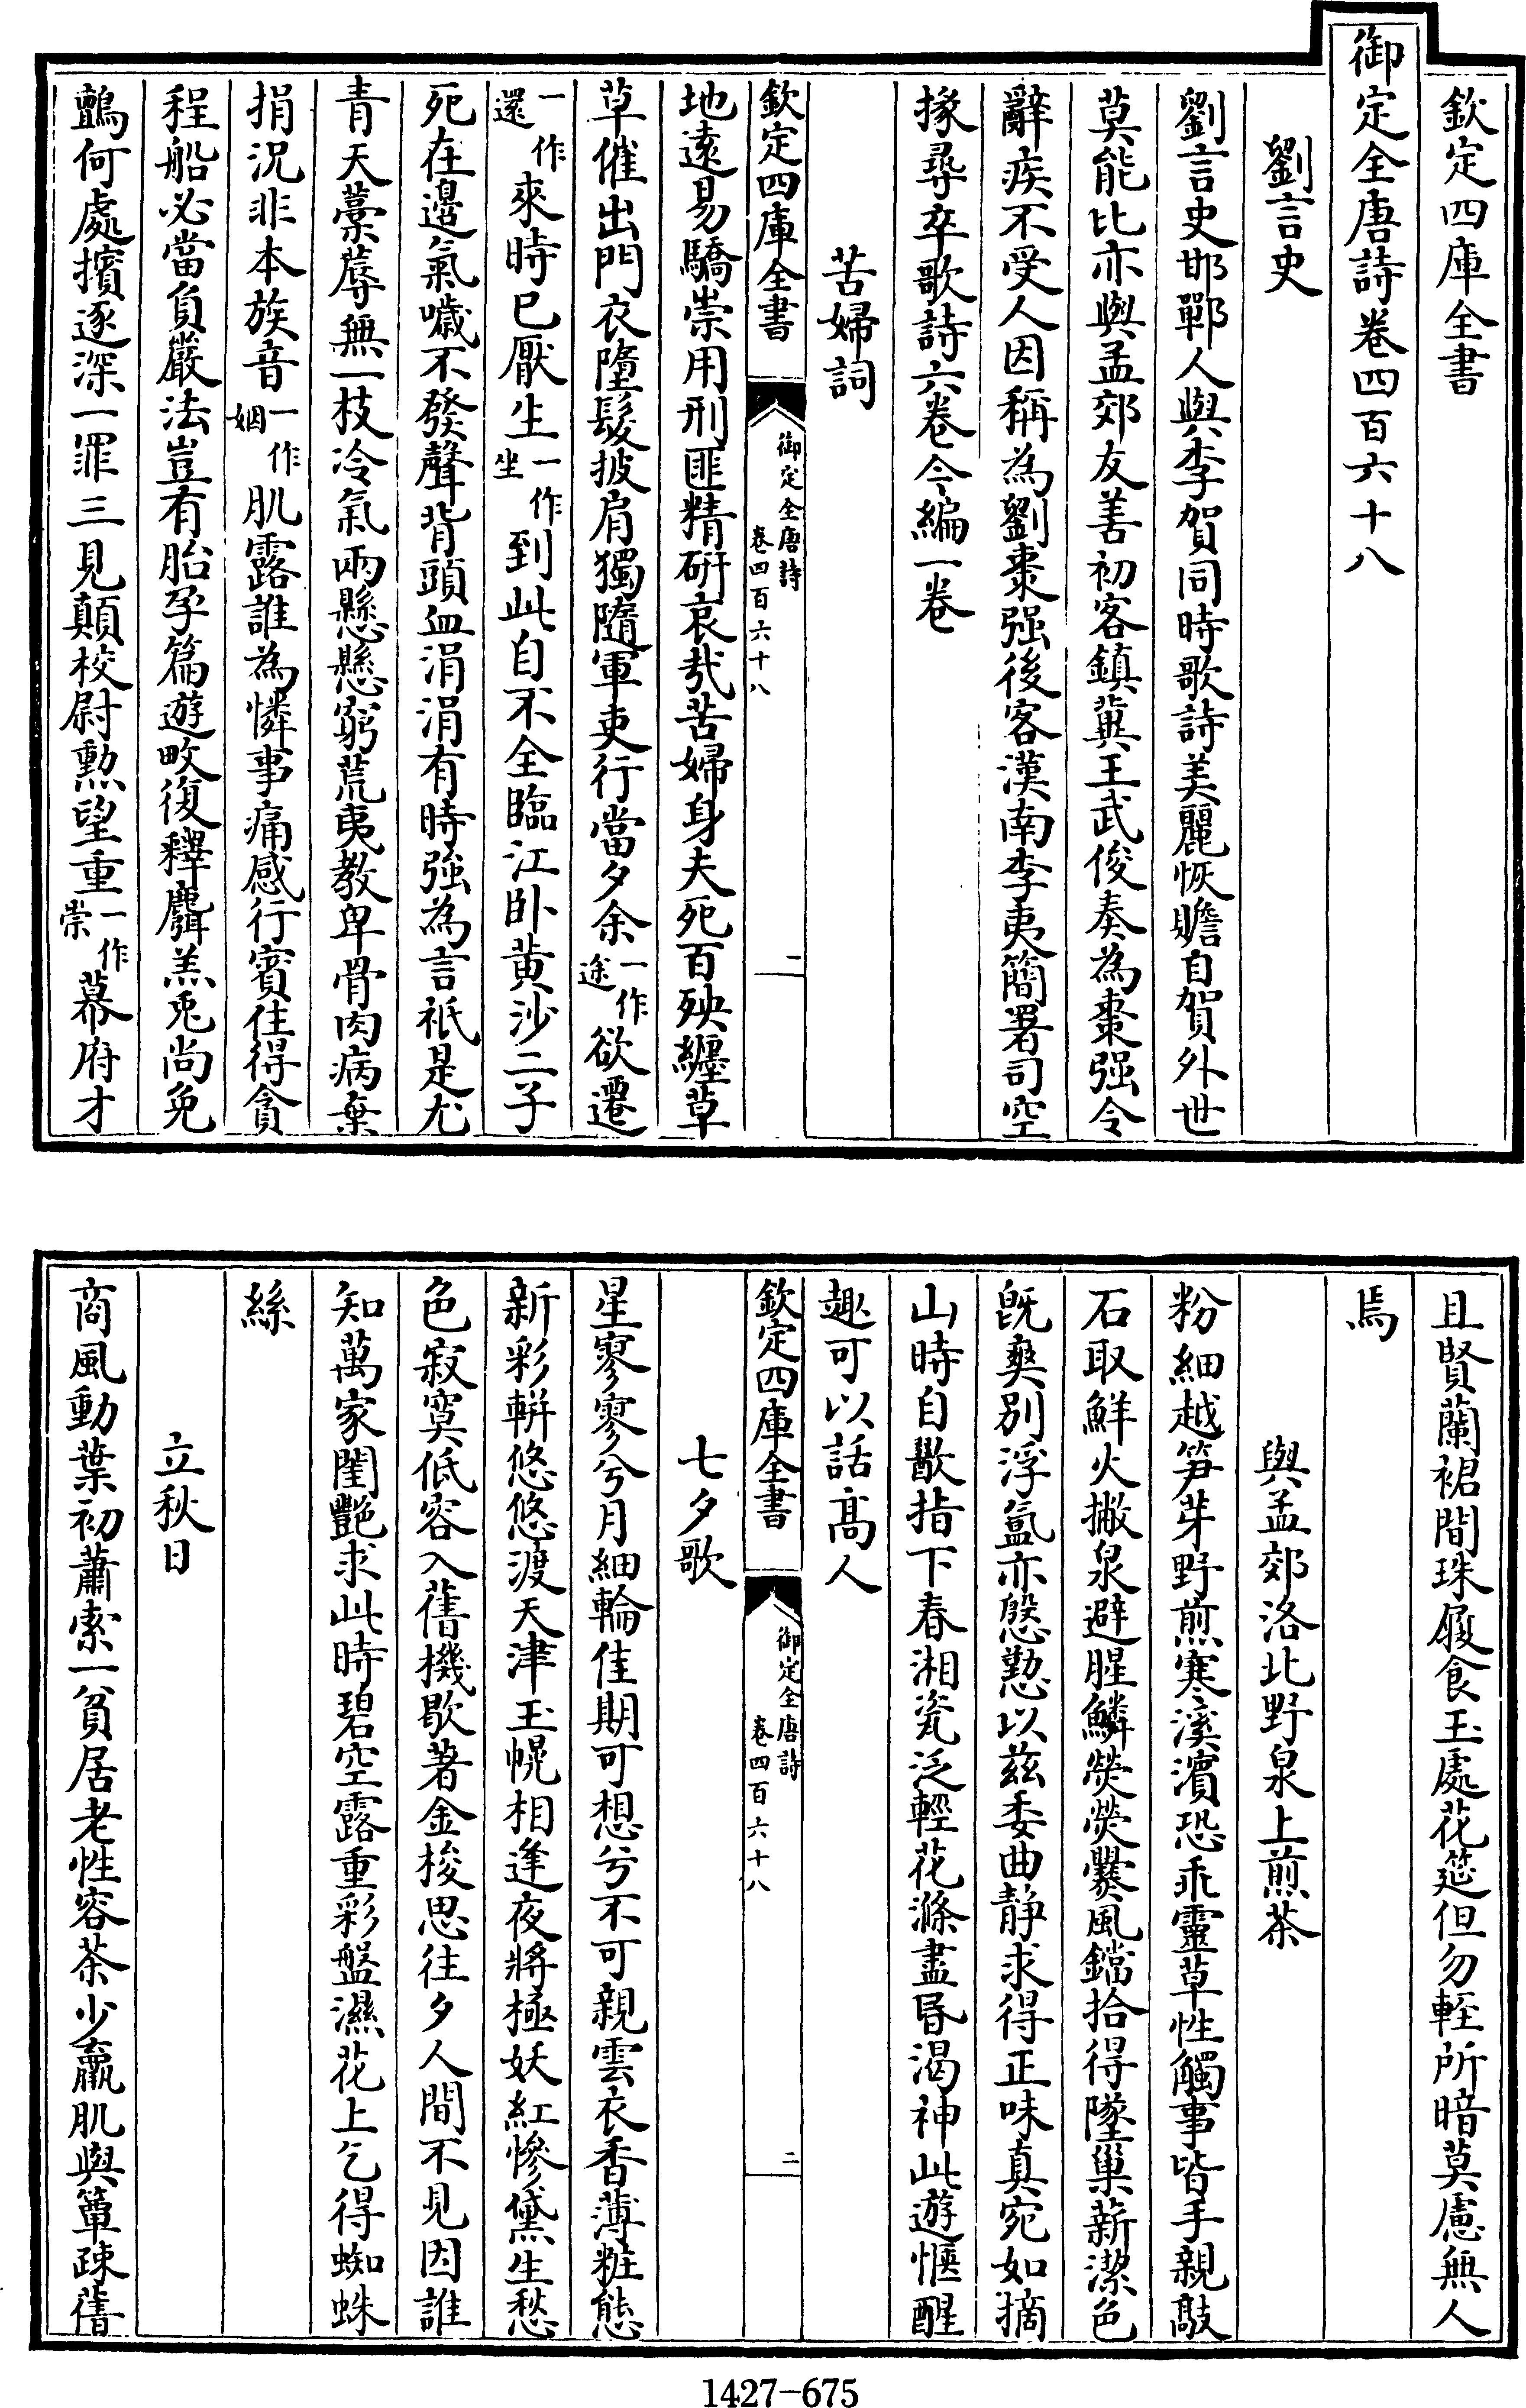 欽定四庫全書
御定全唐詩卷四百六十八
劉言史
劉言史邯鄲人與李賀同時歌詩美麗恢贍自賀外世
莫能比亦與孟郊友善初客鎮冀王武俊奏為棗强令
辭疾不受人因稱為劉棗强後客漢南李夷簡署司空
掾尋卒歌詩六卷今編一卷
苦婦詞
欽定四庫全書
御定全唐詩
卷四百六十八
一
地遠易驕崇用刑匪精研哀哉苦婦身夫死百殃纏草
草催出門衣墮髮披肩獨隨軍吏行當夕余一作途欲遷
一作還來時已厭生一作坐到此自不全臨江卧黄沙二子
死在邊氣噦不發聲背頭血涓涓有時強為言祇是尤
青天藁蓐無一枝冷氣兩懸懸窮荒夷教卑骨肉病棄
捐况非本族音一作姻肌露誰為憐事痛感行賓住得貪
程船必當負嚴法豈有胎孕篇遊畋復釋麛羔兎尚免
鸇何處擯逐深一罪三見顛校尉勲望重一作崇幕府才
且賢蘭裙間珠履食玉處花筵但勿輕所暗莫慮無人
焉
與孟郊洛北野泉上煎茶
粉細越笋芽野煎寒溪濱恐乖靈草性觸事皆手親敲
石取鮮火撇泉避腥鱗熒熒爨風鐺拾得墜巢薪潔色
既爽别浮氳亦慇懃以兹委曲静求得正味真宛如摘
山時自歠指下春湘瓷泛輕花滌盡昏渴神此遊愜醒
趣可以話髙人
欽定四庫全書
御定全唐詩
卷四百六十八
二
七夕歌
星寥寥兮月細輪佳期可想兮不可親雲衣香薄粧態
新彩軿悠悠渡天津玉幌相逢夜將極妖紅慘黛生愁
色寂寞低容入舊機歇著金梭思往夕人間不見因誰
知萬家閨艷求此時碧空露重彩盤濕花上乞得蜘蛛
絲
立秋日
商風動葉初蕭索一貧居老性容茶少羸肌與簟踈舊
1427-675